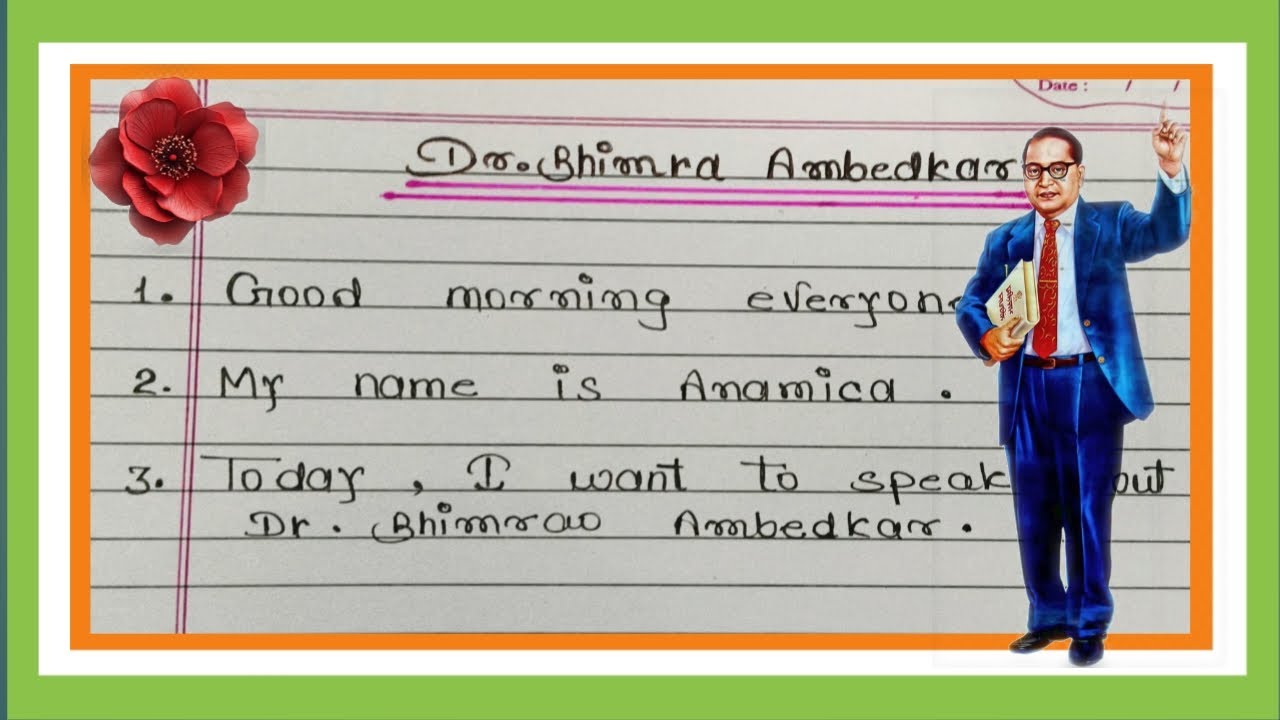 Date : / /
Dr. Bhimra Ambedkar
1. Good morning everyon
2. My name is Anamica .
3. Today , I want to speak out
Dr. Bhimrao Ambedkar .